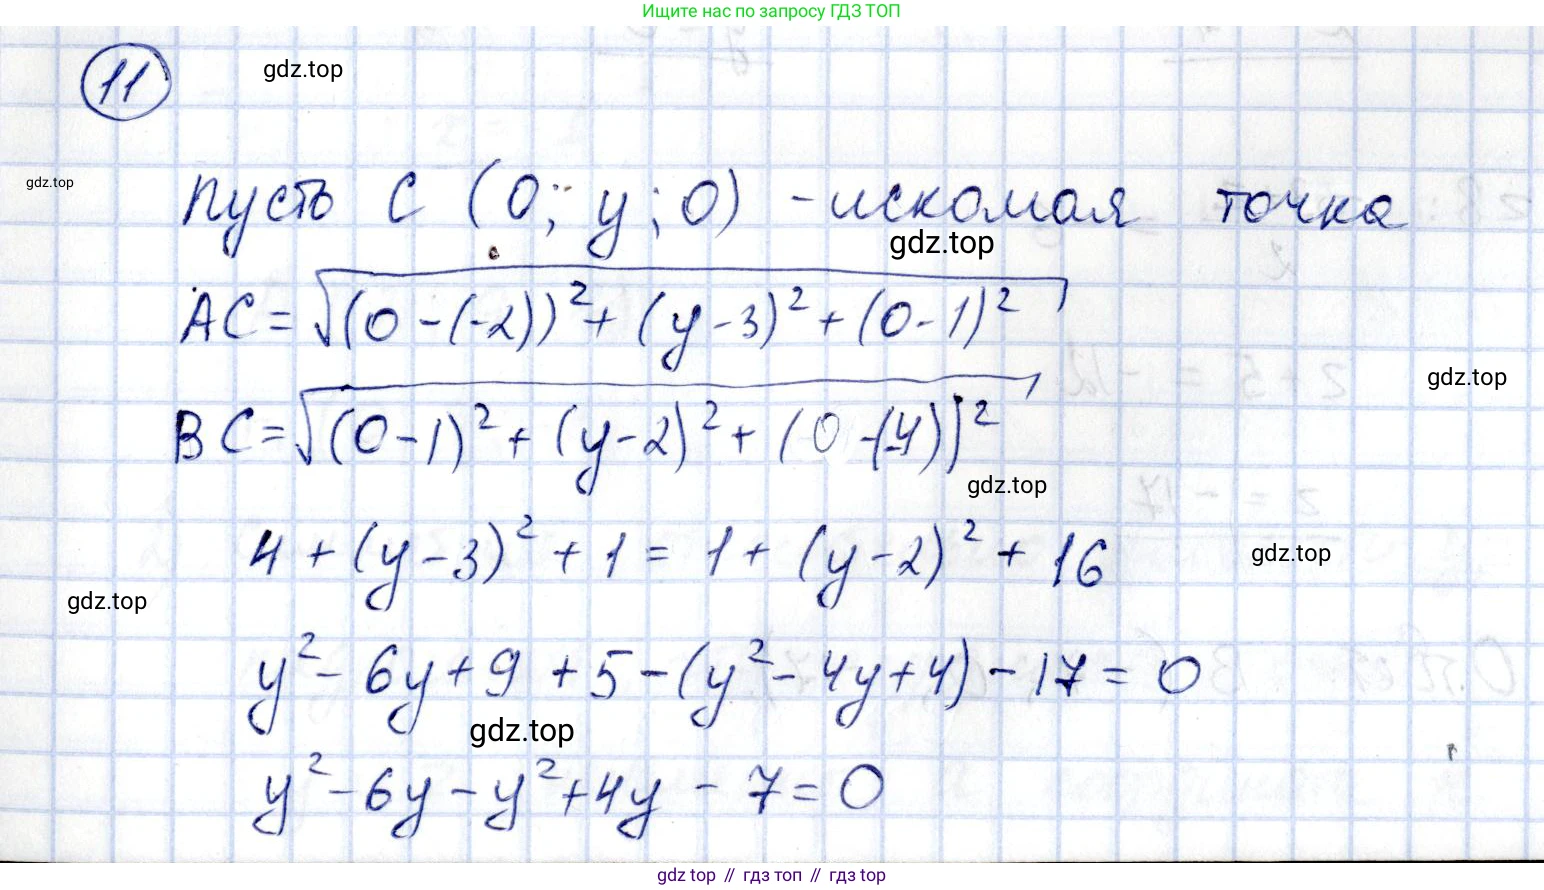 Ищите нас по запросу ГДЗ ТОП
11
gdz.top
gdz.top
Пусть C (0; y; 0) - искомая точка
gdz.top
AC = √(0 - (-2))² + (y - 3)² + (0 - 1)²
gdz.top
BC = √(0 - 1)² + (y - 2)² + (0 - (-4))²
gdz.top
4 + (y - 3)² + 1 = 1 + (y - 2)² + 16
gdz.top
gdz.top
y² - 6y + 9 + 5 - (y² - 4y + 4) - 17 = 0
gdz.top
y² - 6y - y² + 4y - 7 = 0
gdz top // гдз топ // гдз top